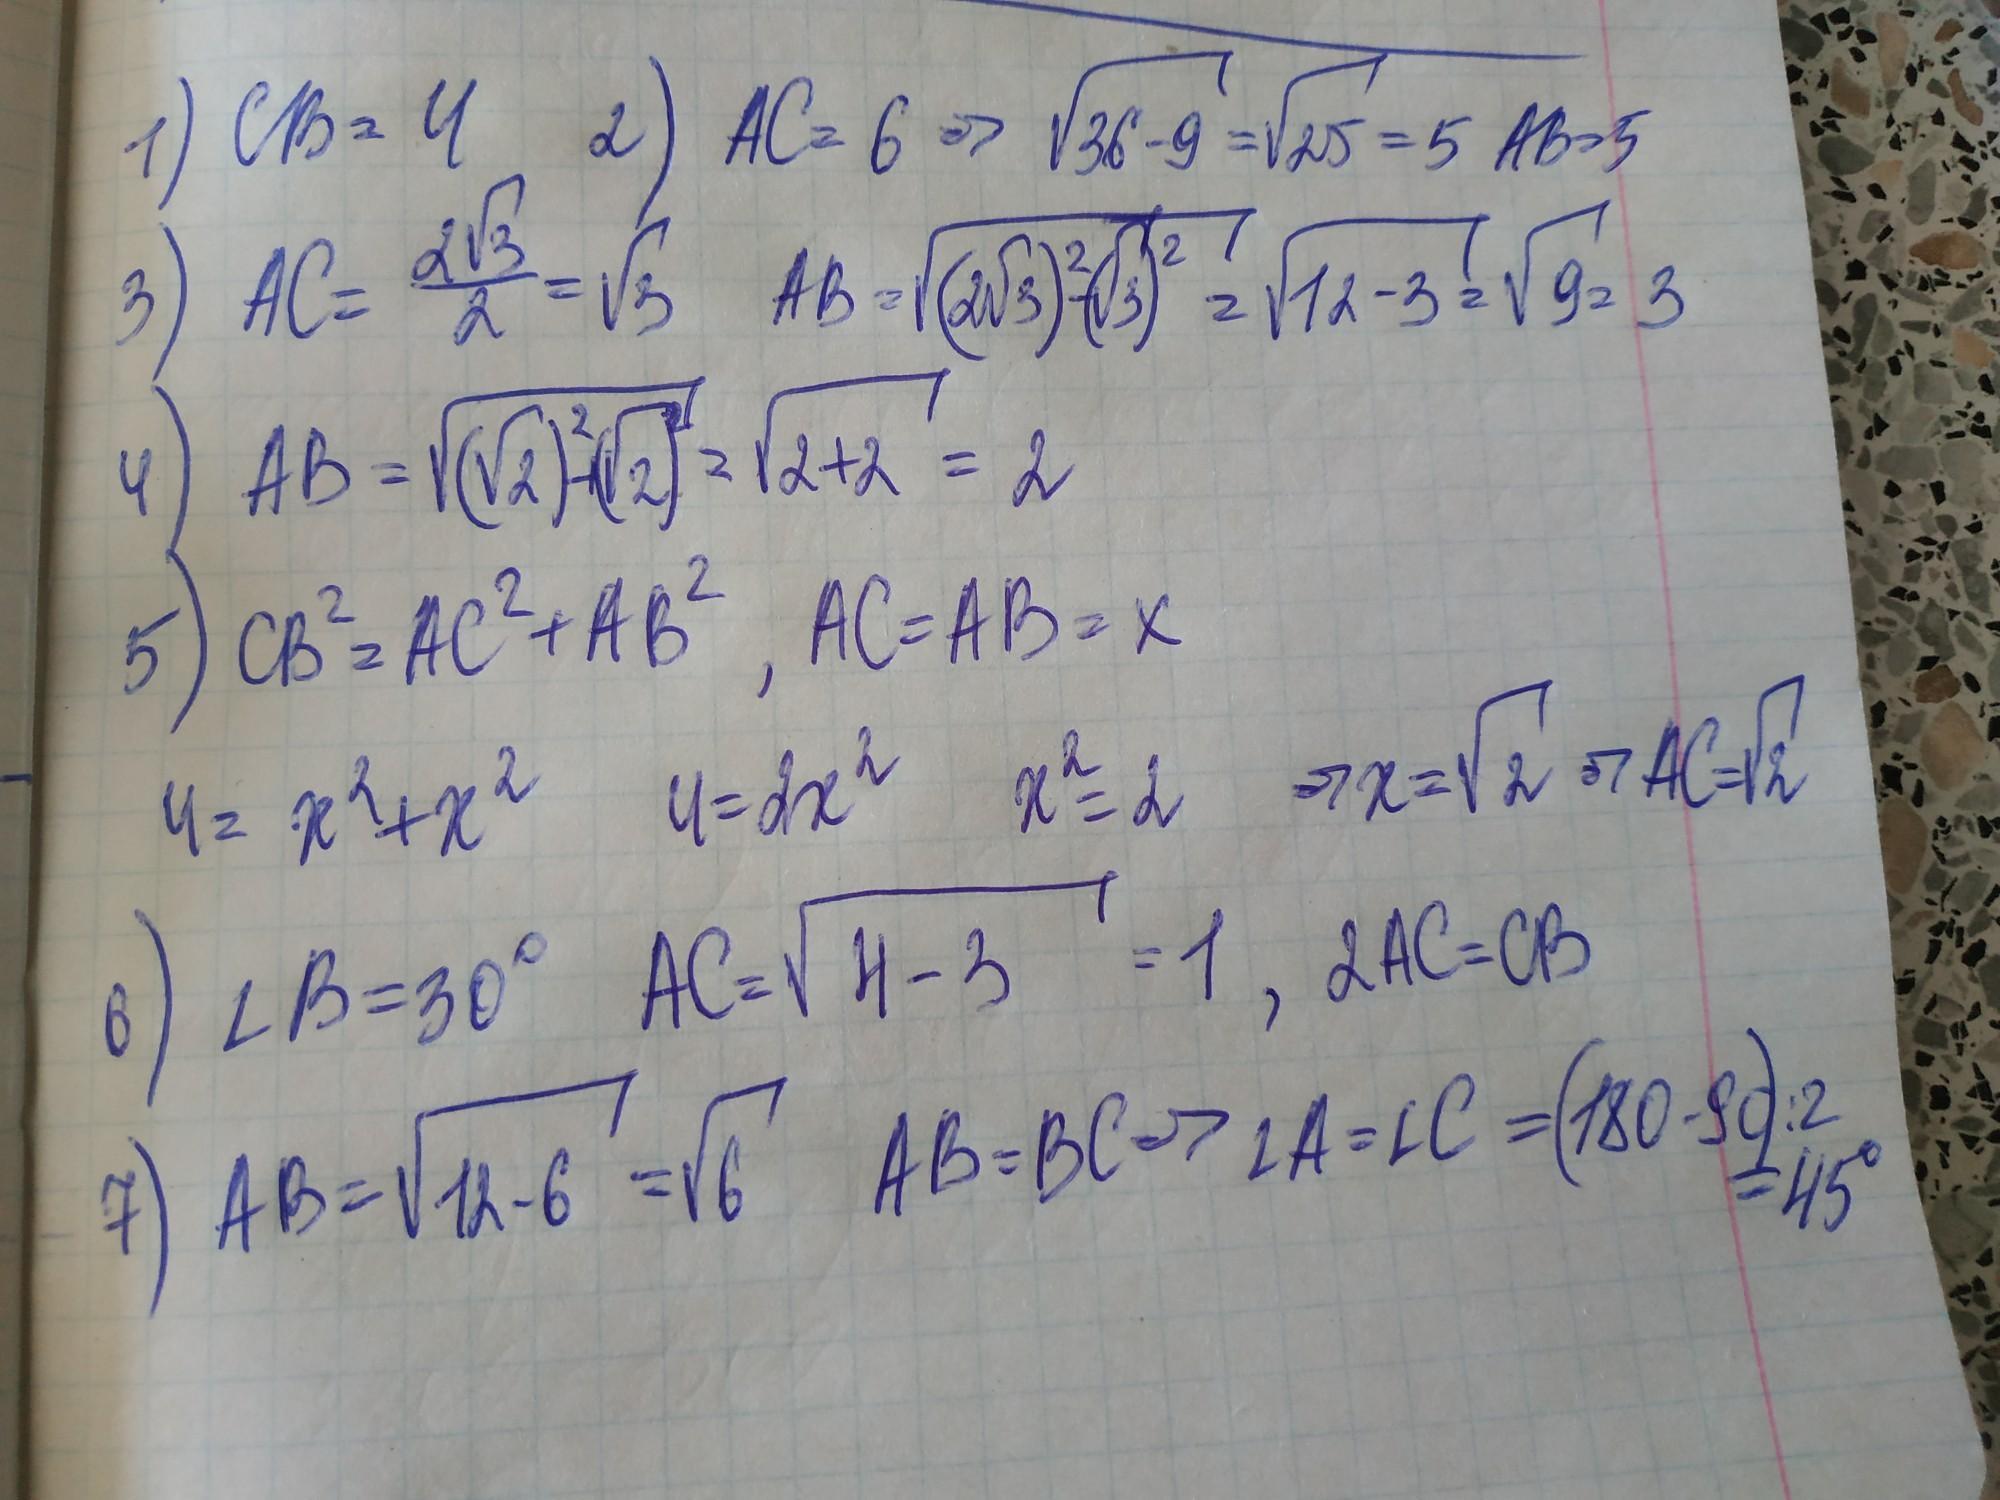 1) CB = 4 2) AC = 6 => √36-9 = √25 = 5 AB = 5
3) AC = 2√3/2 = √3 AB = √(2√3)²-(√3)² = √12-3 = √9 = 3
4) AB = √(√2)²+(√2)² = √2+2 = 2
5) CB² = AC² + AB², AC = AB = x
4 = x² + x² 4 = 2x² x² = 2 => x = √2 => AC = √2
6) ∠B = 30° AC = √4-3 = 1, 2AC = CB
7) AB = √12-6 = √6 AB = BC => ∠A = ∠C = (180-90):2
= 45°